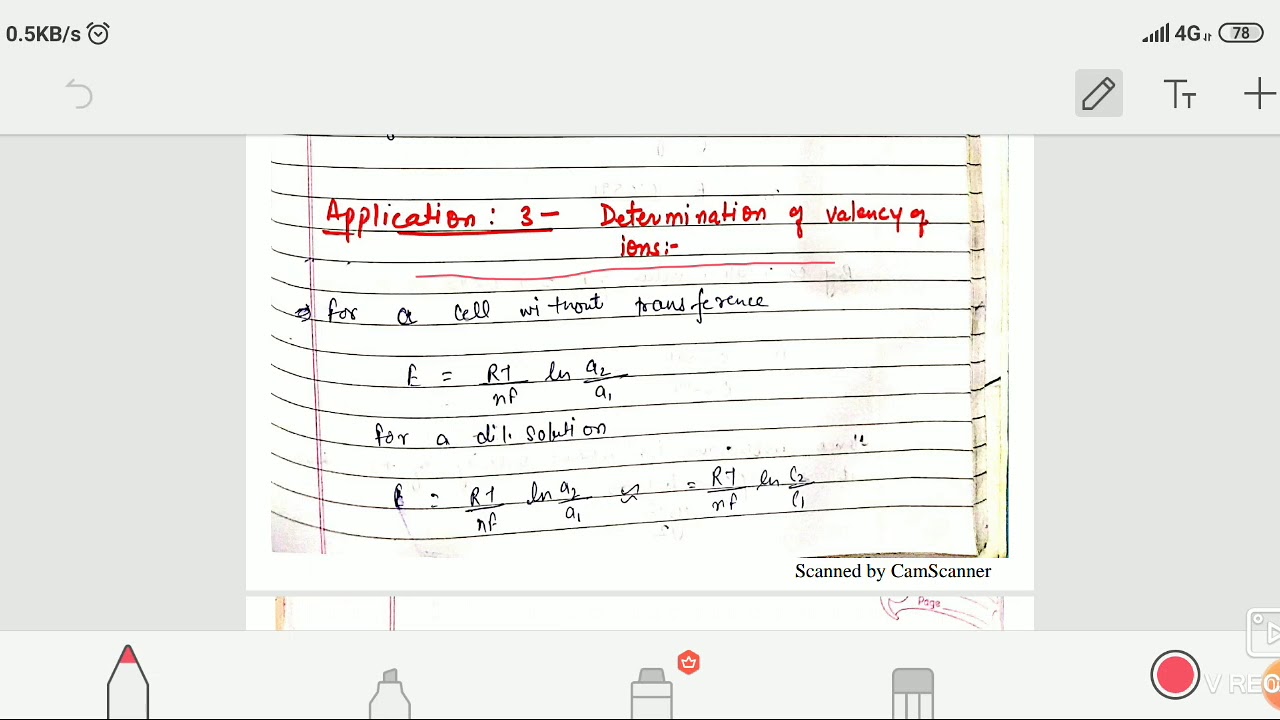 0.5KB/s
4G 78
TT
Application: 3 - Determination of valency of
ions:-
⇒ for a cell without transference
E = RT/nF ln a2/a1
for a dil. solution
E = RT/nF ln a2/a1 ≈ = RT/nF ln C2/C1
Scanned by CamScanner
Page
V REC